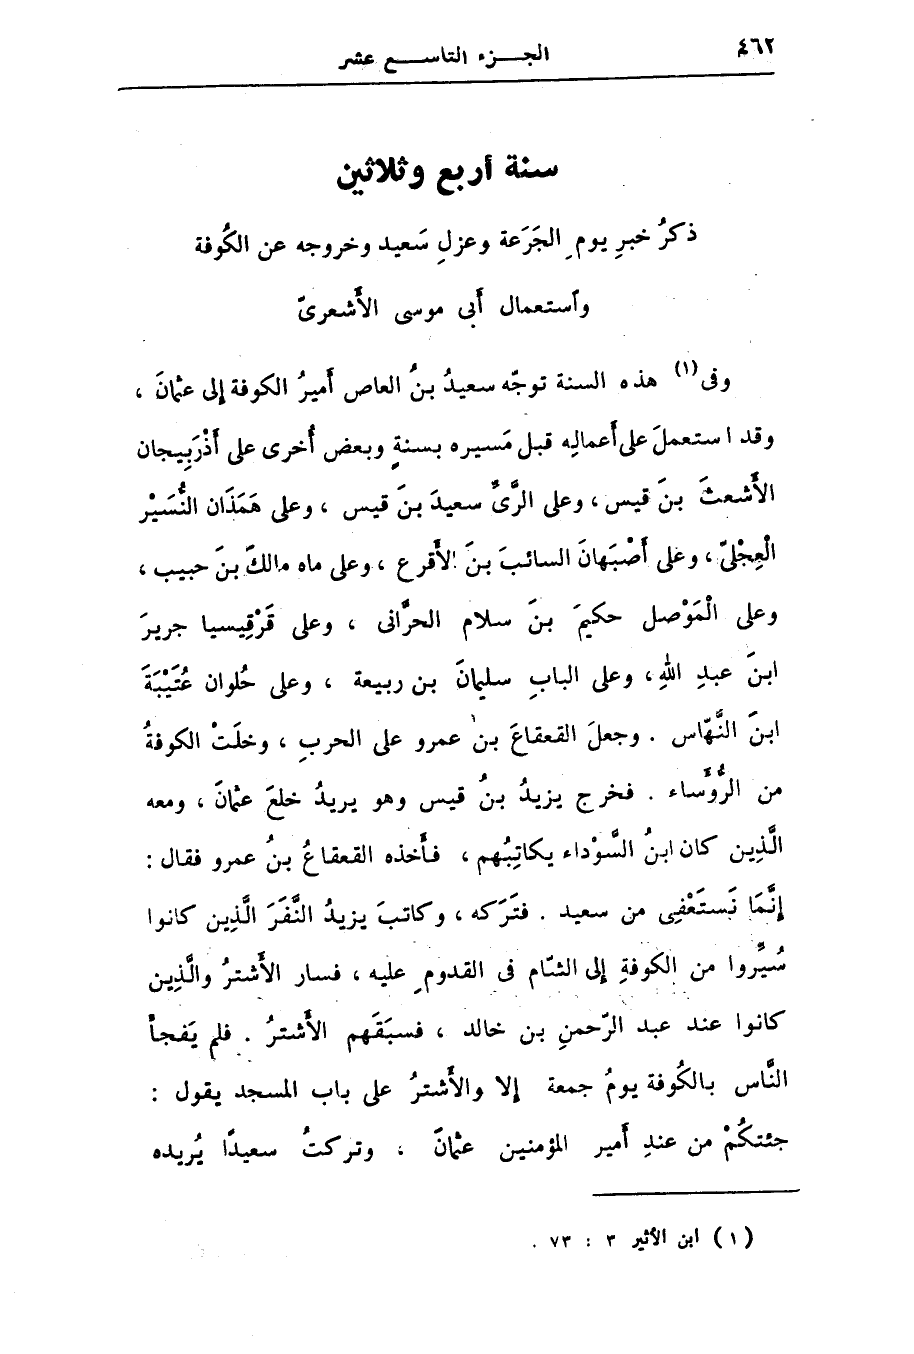 ٤٦٢
الجـــزء التاســـع عشر
سنة أربع وثلاثين
ذكرُ خبرِ يومِ الجَرَعة وعزلِ سَعيد وخروجه عن الكُوفة
وٱستعمال أَبى موسى الأَشعرىّ
وفى(١) هذه السنة توجّه سعيدُ بنُ العاص أَميرُ الكوفة إلى عثمانَ ،
وقد استعملَ على أَعمالِه قبل مَسيره بسنةٍ وبعض أُخرى على أَذْرَبِيجان
الأَشعثَ بنَ قيس ، وعلى الرَّىِّ سعيدَ بنَ قيس ، وعلى هَمَذَان النُّسَيْر
الْعِجْلىّ ، وعلى أَصْبَهانَ السائبَ بنَ الأَقرع ، وعلى ماه مالكَ بنَ حبيب ،
وعلى الْمَوْصل حكيمَ بنَ سلام الحرَّانى ، وعلى قَرْقِيسيا جريرَ
ابنَ عبدِ اللهِ ، وعلى البابِ سليمانَ بن ربيعة ، وعلى حُلوان عُتَيْبَةَ
ابنَ النَّهّاس . وجعلَ القعقاعَ بن عمرو على الحربِ ، وخلَتْ الكوفةُ
من الرُّؤَساء . فخرج يزيدُ بنُ قيس وهو يريدُ خلعَ عثمانَ ، ومعه
الَّذِين كان ابنُ السَّوْداء يكاتِبُهم ، فأَخذه القعقاعُ بنُ عمرو فقال :
إِنَّمَا نَستَعْفِى من سعيد . فتَرَكه ، وكاتبَ يزيدُ النَّفَرَ الَّذِين كانوا
سُيِّروا من الكوفةِ إلى الشّام فى القدومِ عليه ، فسار الأَشترُ والَّذِين
كانوا عند عبد الرّحمنِ بن خالد ، فسبَقَهم الأَشترُ . فلم يَفجأْ
النَّاس بالكُوفة يومُ جمعة إلا والأَشترُ على باب المسجد يقول :
جئتكُمْ من عندِ أَمير المؤمنين عثمانَ ، وتركتُ سعيدًا يُريده
(١) ابن الأثير ٣ : ٧٣ .